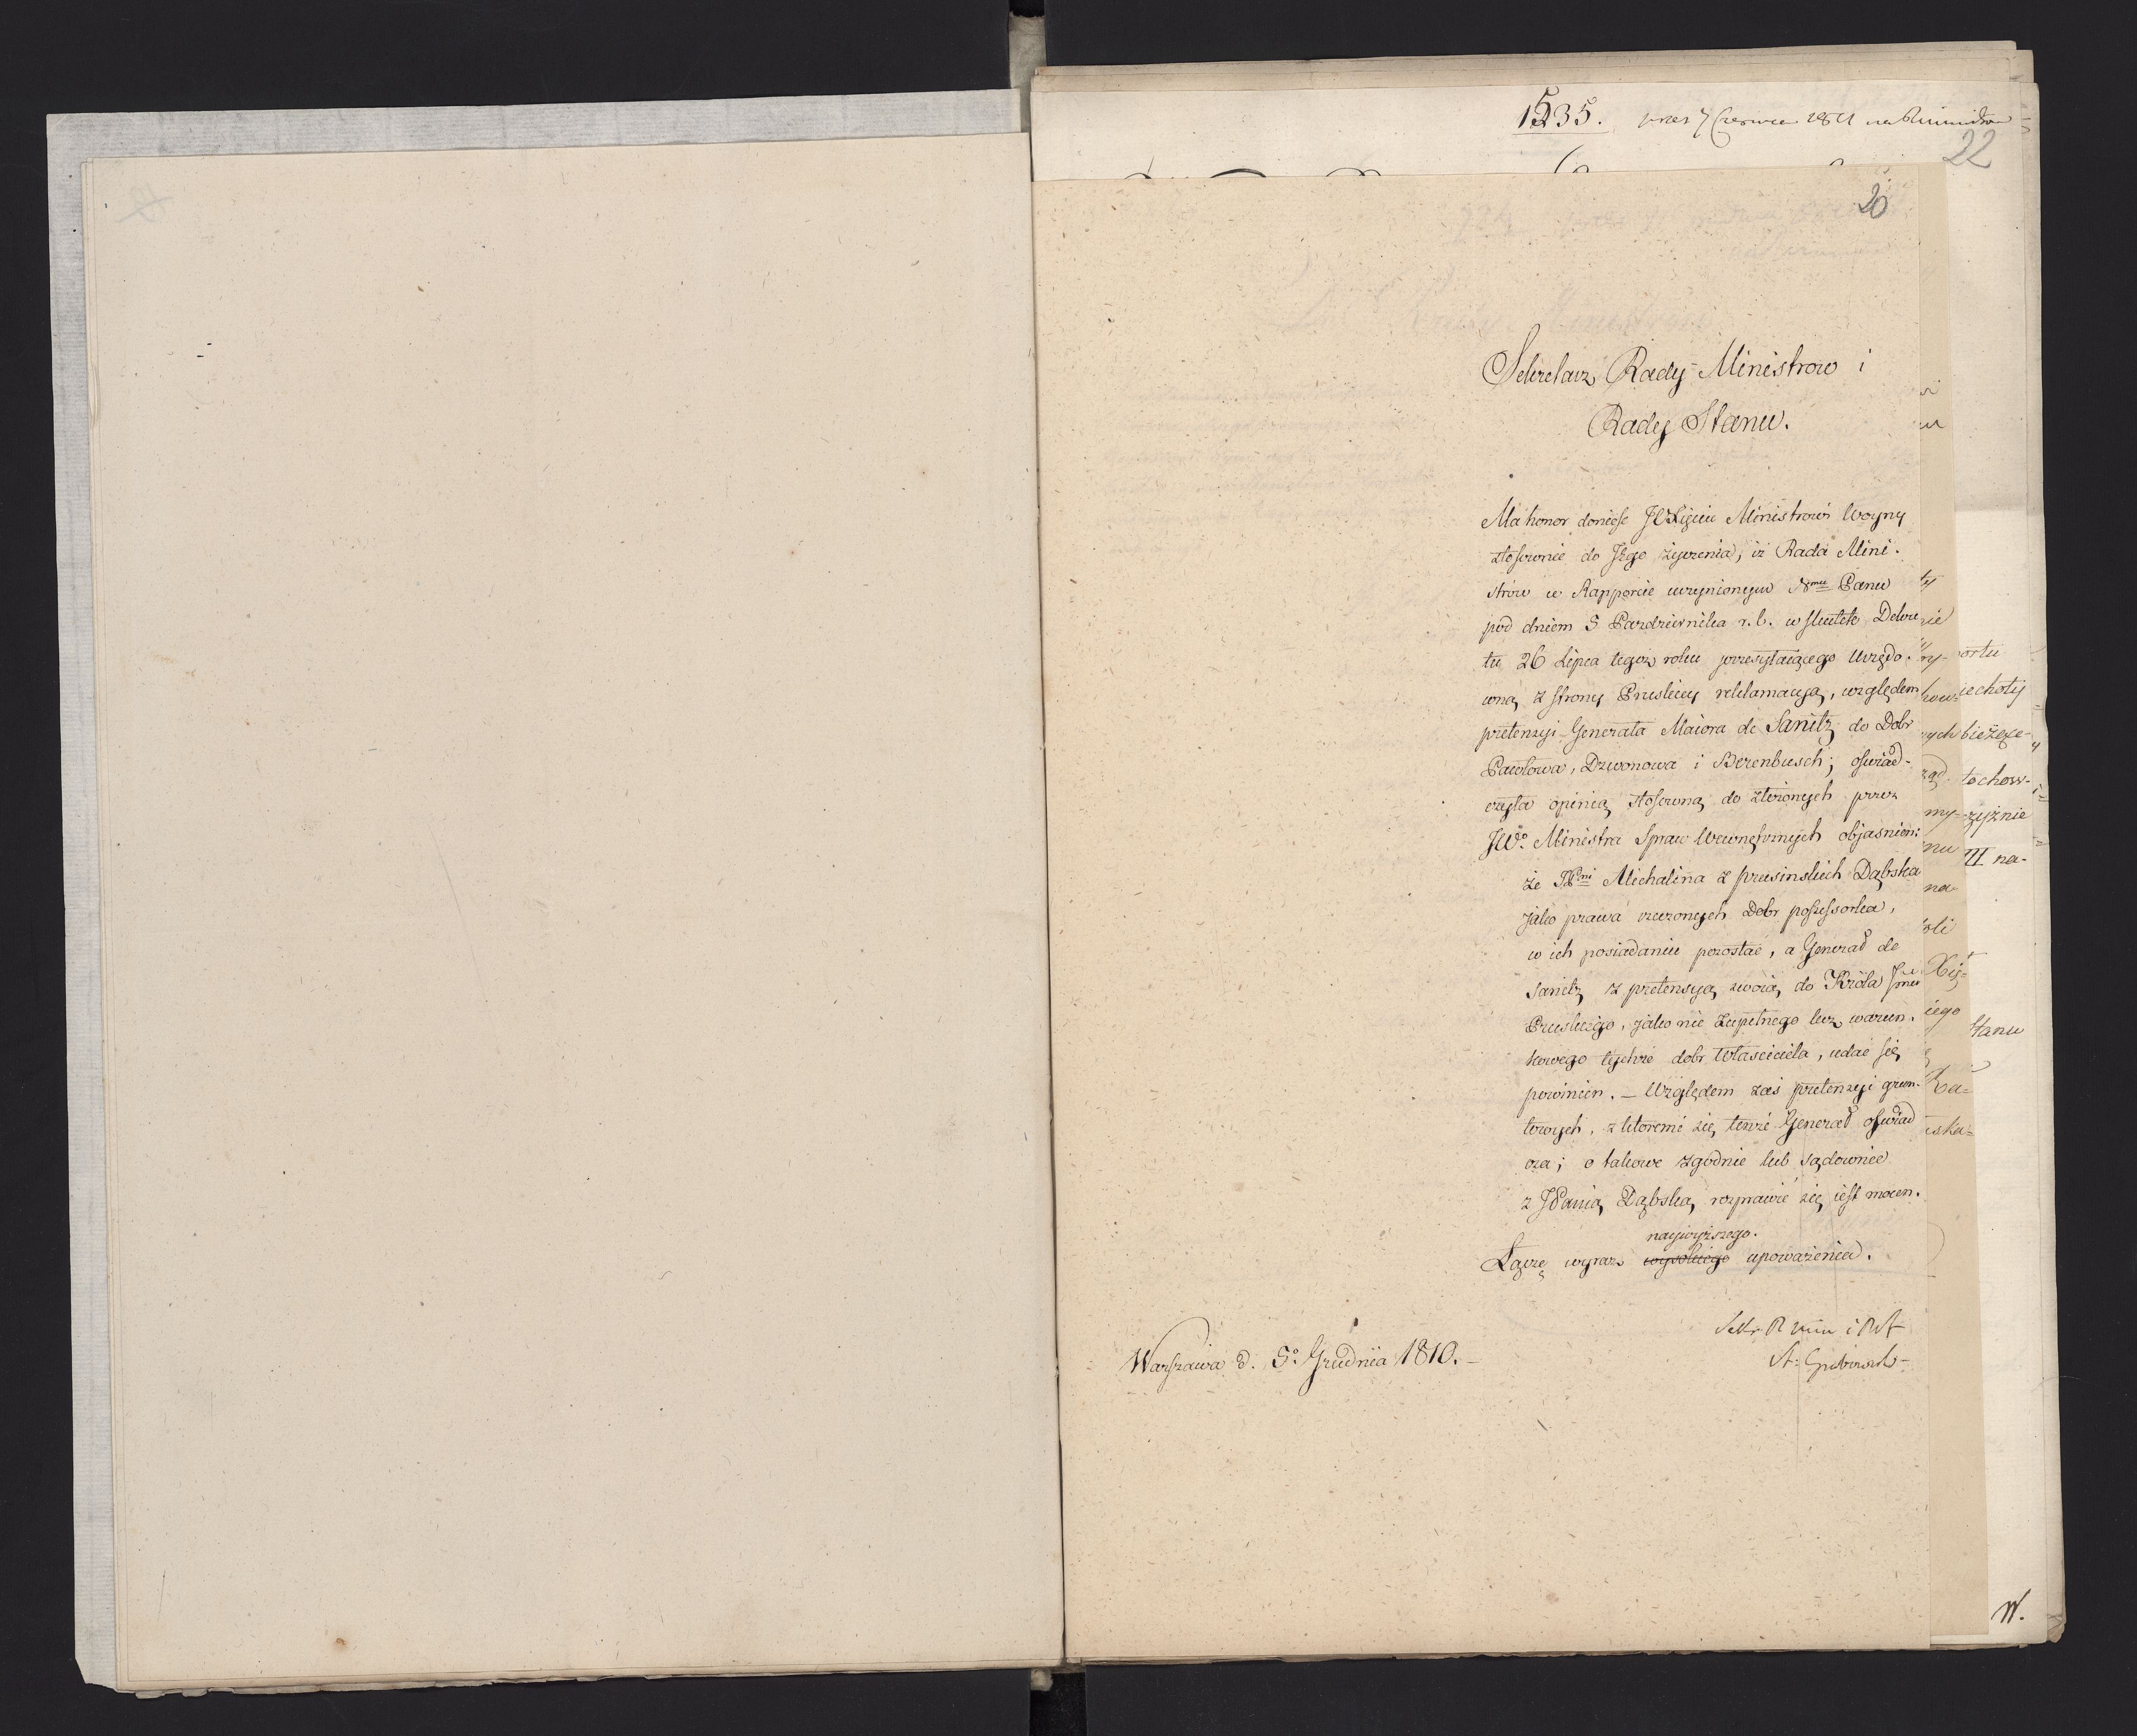 1535. 7 Czerwca 1811
22
20
Sekretarz Rady Ministrow i
Rady Stanu.
Ma honor donieść JO Xięciu Ministrowi Woyny
stosownie do Jego życzenia, iż Rada Mini-
strów w Rapporcie uczynionym Nmu Panu
pod dniem 5 Pazdziernika r. b. w skutek Dekre
tu 26 Lipca tegoż roku przesyłaiącego Urzędo-
wną z strony Pruskiey reklamacyą, względem
pretensyi Generała Maiora de Sanitz do Dobr
Pawłowa, Dzwonowa i Berenbusch; oświad-
czyła opinią stosowną do złożonych przez
JWo Ministra Spraw Wewnętrznych objasnien:
że JPni Michalina z prusinskich Dąbska
jako prawa rzeczonych Dobr possessorka,
w ich posiadaniu pozostać, a Generał de
Sanitz z pretensyą swoią do Króla Jmci
Pruskiego, jako nie zupełnego lecz warun-
kowego tychże dobr własciciela, udać się
powinien. — Względem zaś pretensyi grun-
towych, z ktoremi się tenże Generał oświad
cza; o takowe zgodnie lub sądownie
z JPanią Dąbską rozprawić się iest mocen.
naywyższego.
Łączę wyraz wysokiego upoważenia.
Sekr. R Min i R St
Warszawa d. 5o Grudnia 1810. —
St: Grabowski
ortu
iechoty
bieżące-
tochow-
czyźnie
III na-
Stanu
W.